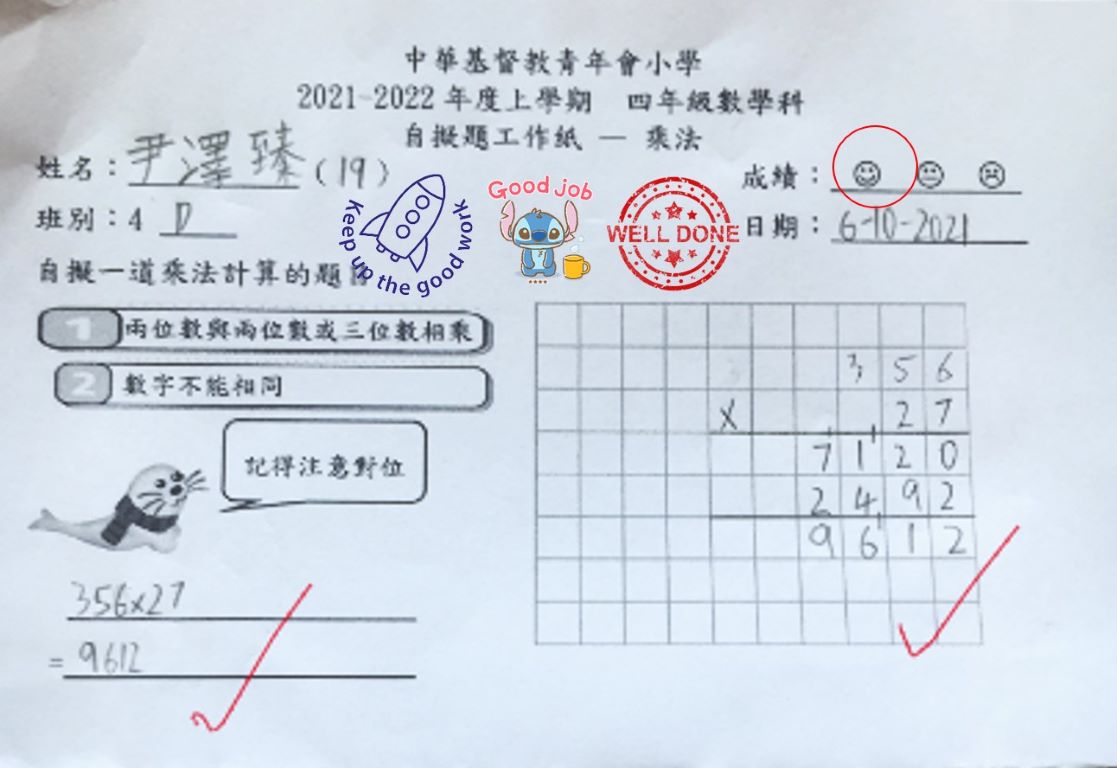 中華基督教青年會小學
2021-2022 年度上學期 四年級數學科
自擬題工作紙 — 乘法
姓名：尹澤臻（19）
成績：
班別：4 D
日期：6-10-2021
Keep up the good work
Good job
WELL DONE
自擬一道乘法計算的題目
1 兩位數與兩位數或三位數相乘
2 數字不能相同
記得注意對位
356
x 27
7120
2492
9612
356x27
= 9612